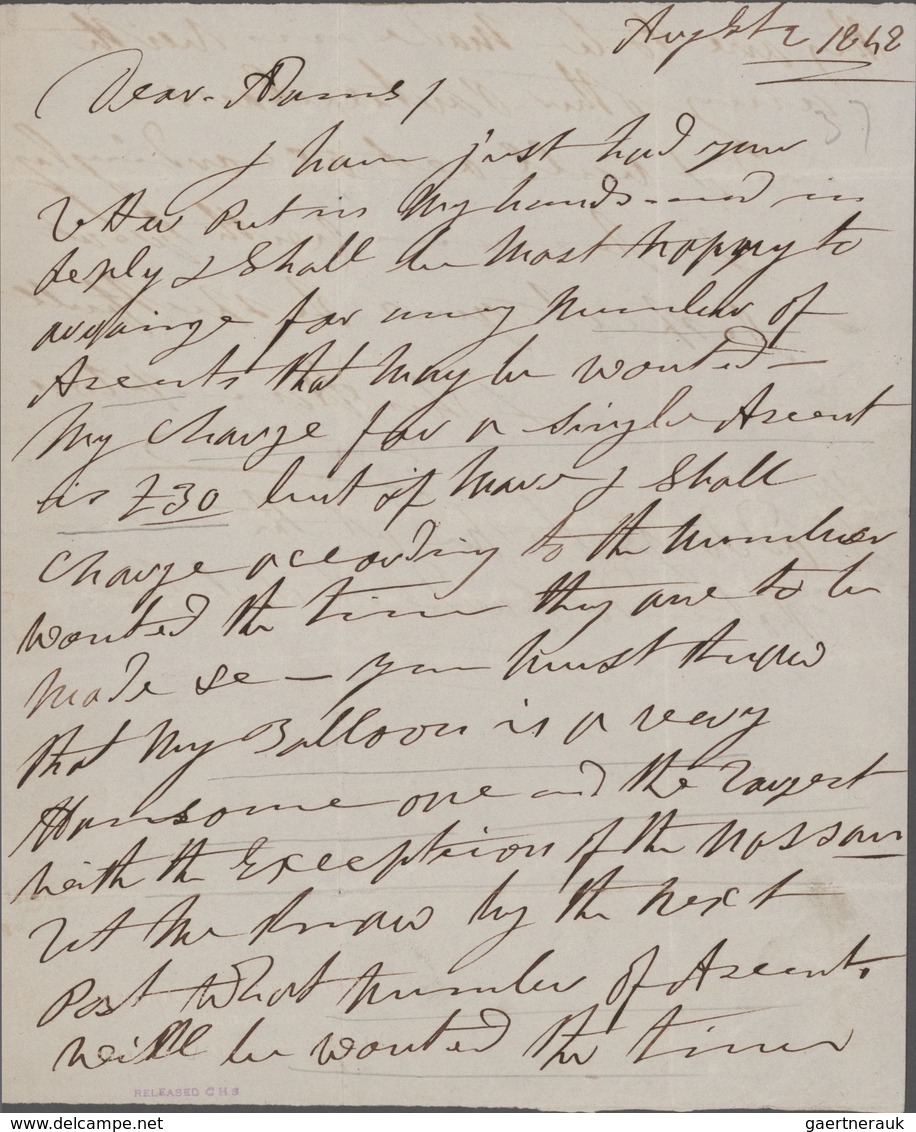 Augst 2 1848
Dear Adams
I have just had your
Letter Put in My hands - and in
Reply I Shall be Most Happy to
arrange for any Number of
Ascents that May be wanted -
My Charge for a Single Ascent
is £30 but if More I Shall
Charge according to the Number
wanted the time they are to be
Made &c - you Must Know
that My Balloon is a very
Hansome one and the Largest
with the Exception of the Nassau
Let Me Know by the Next
Post What Number of Ascents
will be wanted the time
RELEASED C H S
gaertnerauk